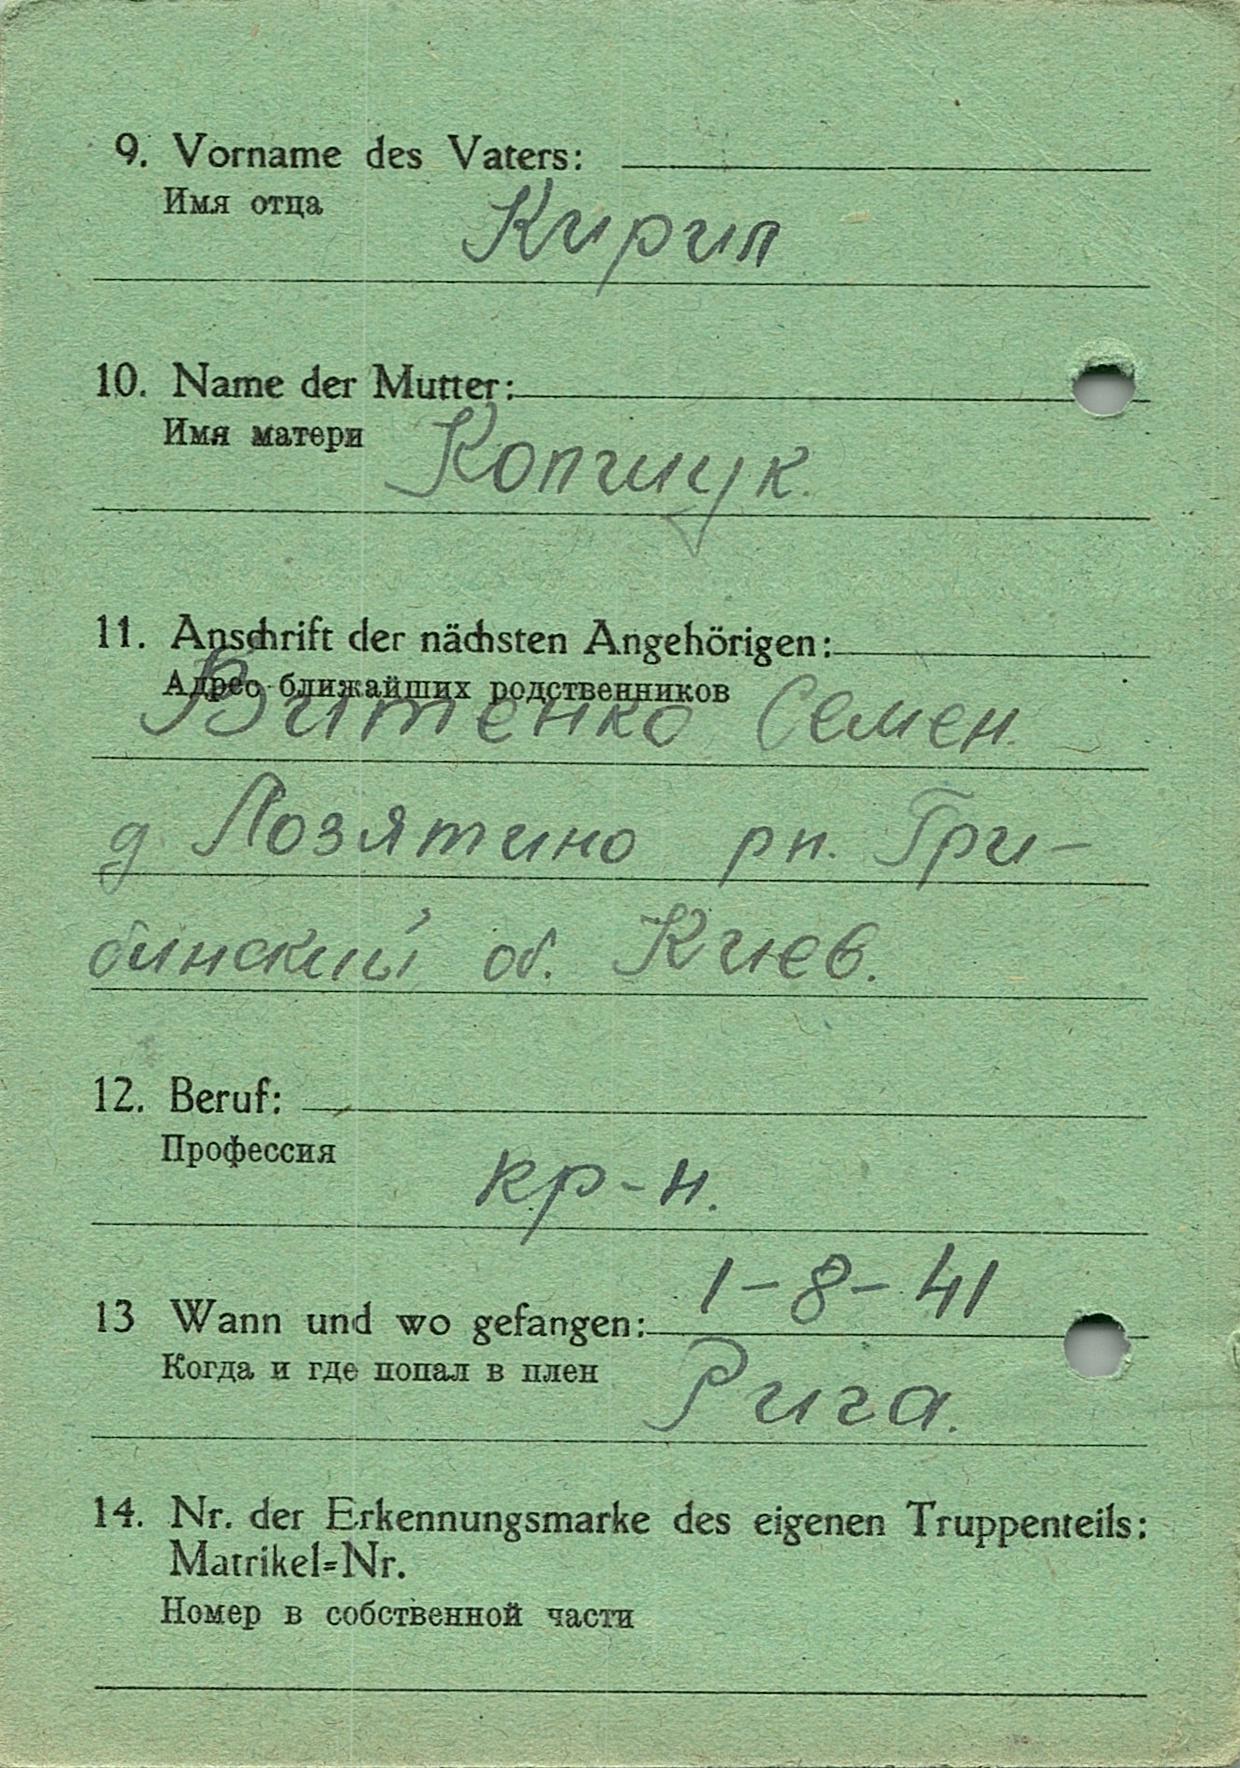 9. Vorname des Vaters:
Имя отца
Кирил
10. Name der Mutter:
Имя матери
Копчук.
11. Anschrift der nächsten Angehörigen:
Адрес ближайших родственников
Витенко Семен
д Лозятино рн. Гри-
бинский об. Киев.
12. Beruf:
Профессия
кр-н.
1-8-41
13 Wann und wo gefangen:
Когда и где попал в плен
Рига.
14. Nr. der Erkennungsmarke des eigenen Truppenteils:
Matrikel=Nr.
Номер в собственной части